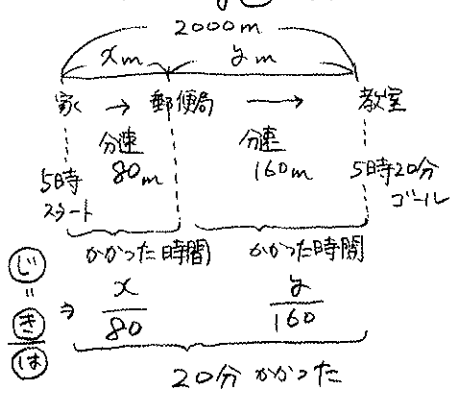 2000m
xm ym
家 → 郵便局 → 教室
分速 分速
80m 160m
5時 5時20分
スタート ゴール
かかった時間 かかった時間
じ = き/は ⇒ x/80 y/160
20分かかった